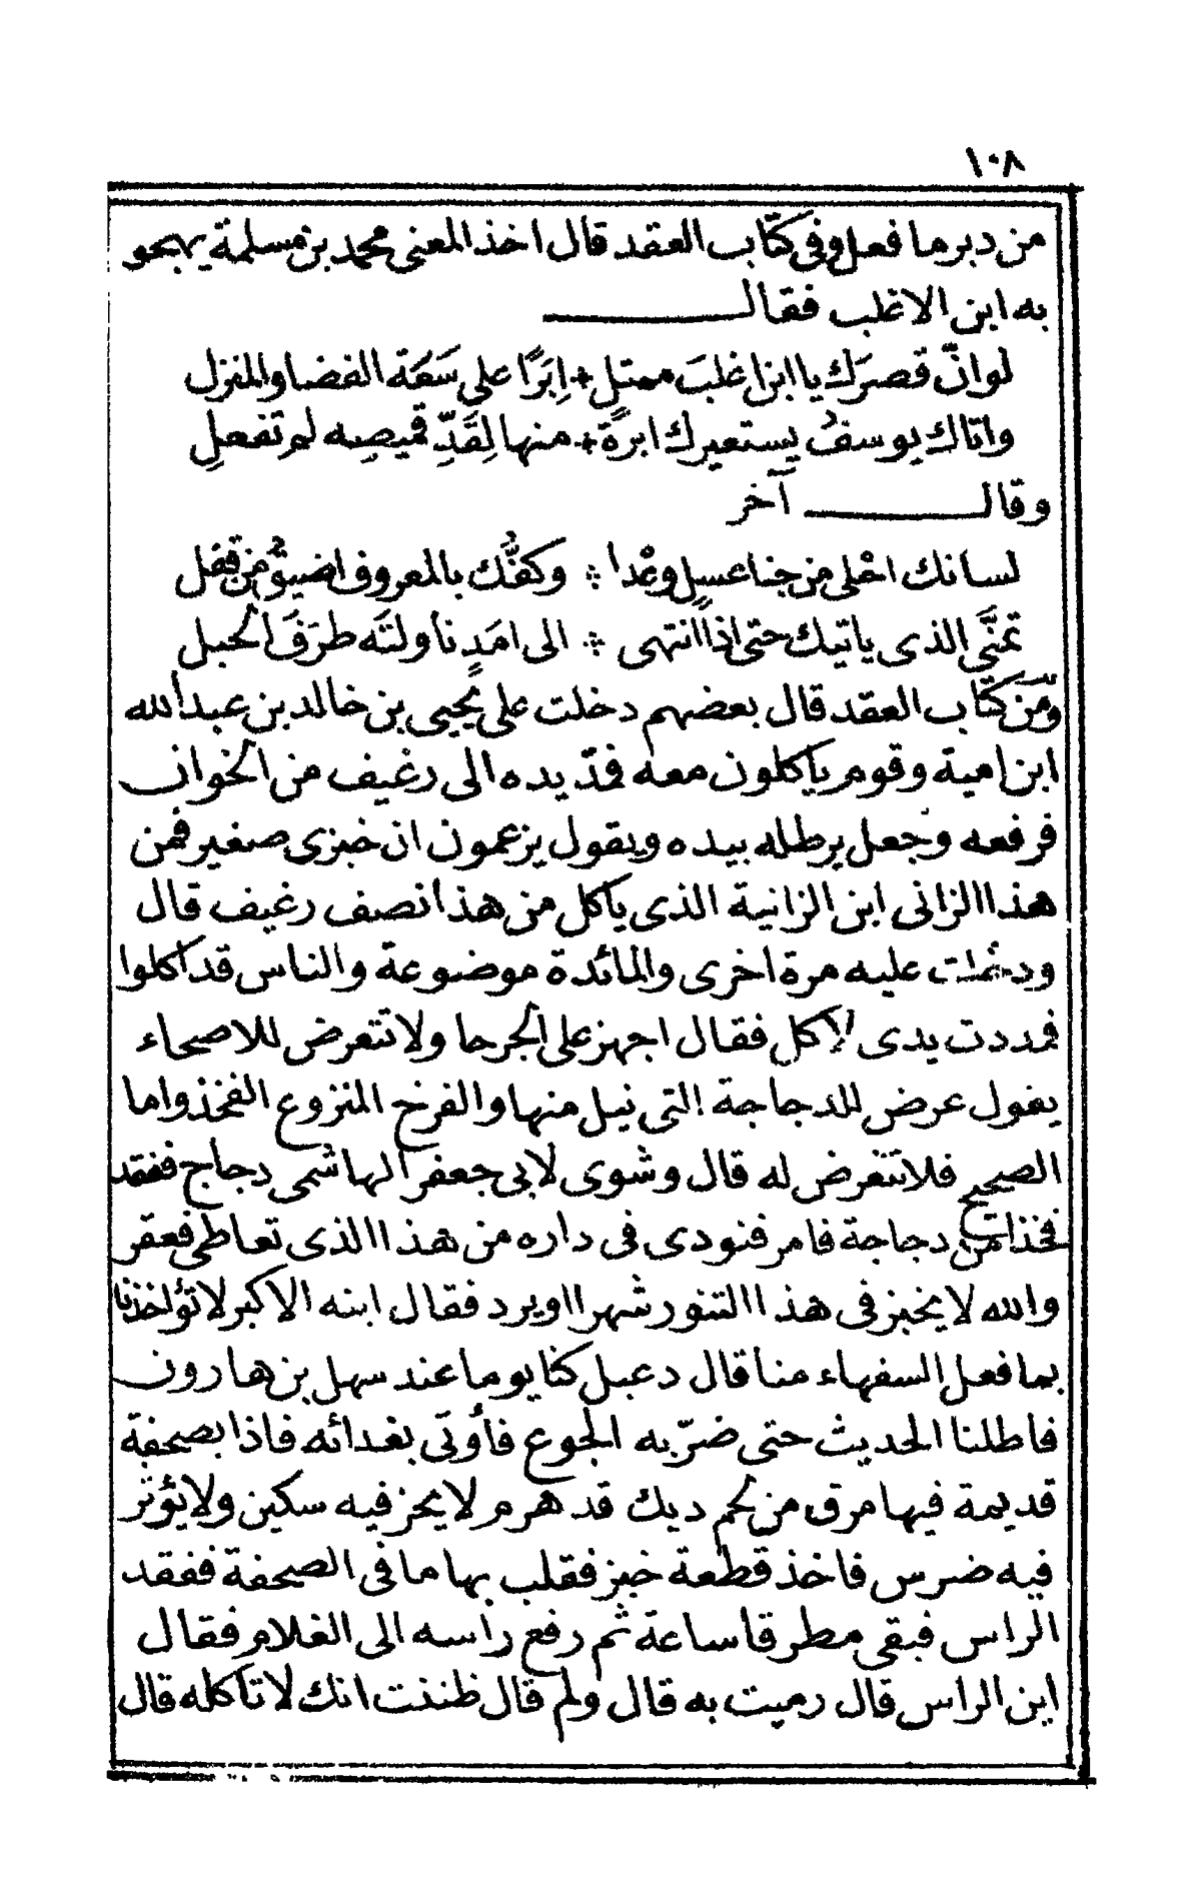 ١٠٨
من دبر ما فعل وفى كتاب العقد قال اخذ المعنى محمد بن مسلمة يهجو
به ابن الاغلب فقال
لو انّ قصرَك يا ابن اغلبَ ممتلٍ * اِبَرًا على سَعَة الفضا والمنزل
واتاك يوسفُ يستعيرك ابرةً * منها لِقَدِّ قميصِه لم تفعلِ
وقال آخر
لسانك احْلى من جنا عسلٍ وعْدا * وكفُّك بالمعروف اضيقُ من قفل
تمنَّى الذى ياتيك حتى اذا انتهى * الى امَدٍ ناولتَه طرَفَ الحبل
ومن كتاب العقد قال بعضهم دخلت على يحيى بن خالد بن عبد الله
ابن امية وقوم ياكلون معه فمدّ يده الى رغيف من الخوان
فرفعه وجعل يرطله بيده ويقول يزعمون ان خبزى صغير فمن
هذا الزانى ابن الزانية الذى ياكل من هذا نصف رغيف قال
ودخلت عليه مرة اخرى والمائدة موضوعة والناس قد اكلوا
فمددت يدى لاكل فقال اجهز على الجرحا ولا تتعرض للاصحاء
يقول عرض للدجاجة التى نيل منها والفرخ المنزوع الفخذ واما
الصحيح فلا تتعرض له قال وشوى لابى جعفر الهاشمى دجاج ففقد
فخذا من دجاجة فامر فنودى فى داره من هذا الذى تعاطى فعقر
والله لا يخبز فى هذا التنور شهرا او يرد فقال ابنه الاكبر لا تؤاخذنا
بما فعل السفهاء منا قال دعبل كنا يوما عند سهل بن هارون
فاطلنا الحديث حتى ضرّ به الجوع فأوتى بغدائه فاذا بصحفة
قديمة فيها مرق من لحم ديك قد هرم لا يحز فيه سكين ولا يؤثر
فيه ضرس فاخذ قطعة خبز فقلب بها ما فى الصحفة ففقد
الراس فبقى مطرقا ساعة ثم رفع راسه الى الغلام فقال
اين الراس قال رميت به قال ولم قال ظننت انك لا تاكله قال